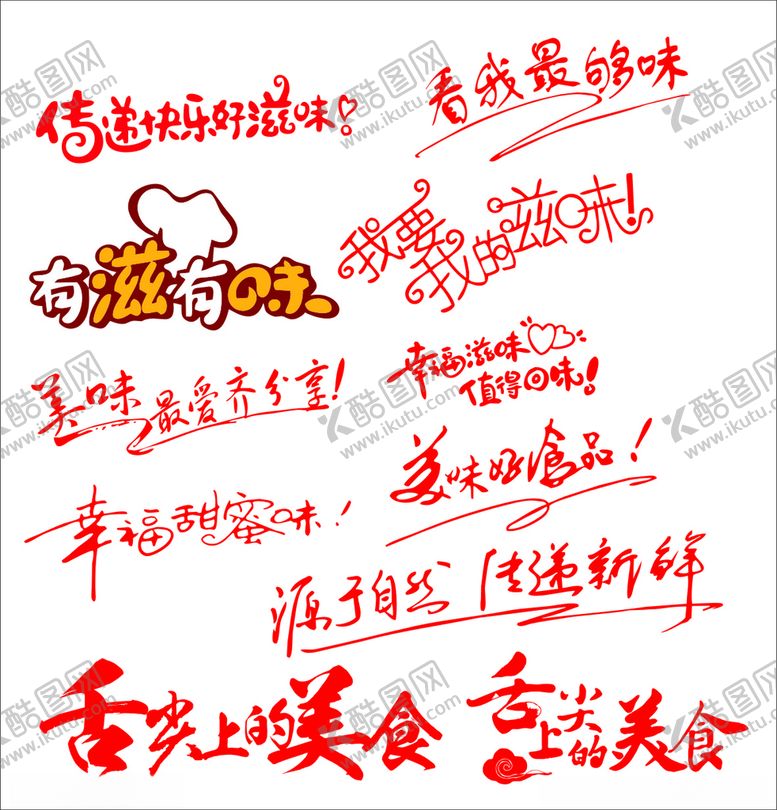 传递快乐好滋味!
看我最够味
有滋有味
我要
我的滋味!
美味最爱齐分享!
幸福滋味
值得回味!
美味好食品!
幸福甜蜜味!
源于自然 传递新鲜
舌尖上的美食
舌尖上的美食
酷图网
www.ikutu.com